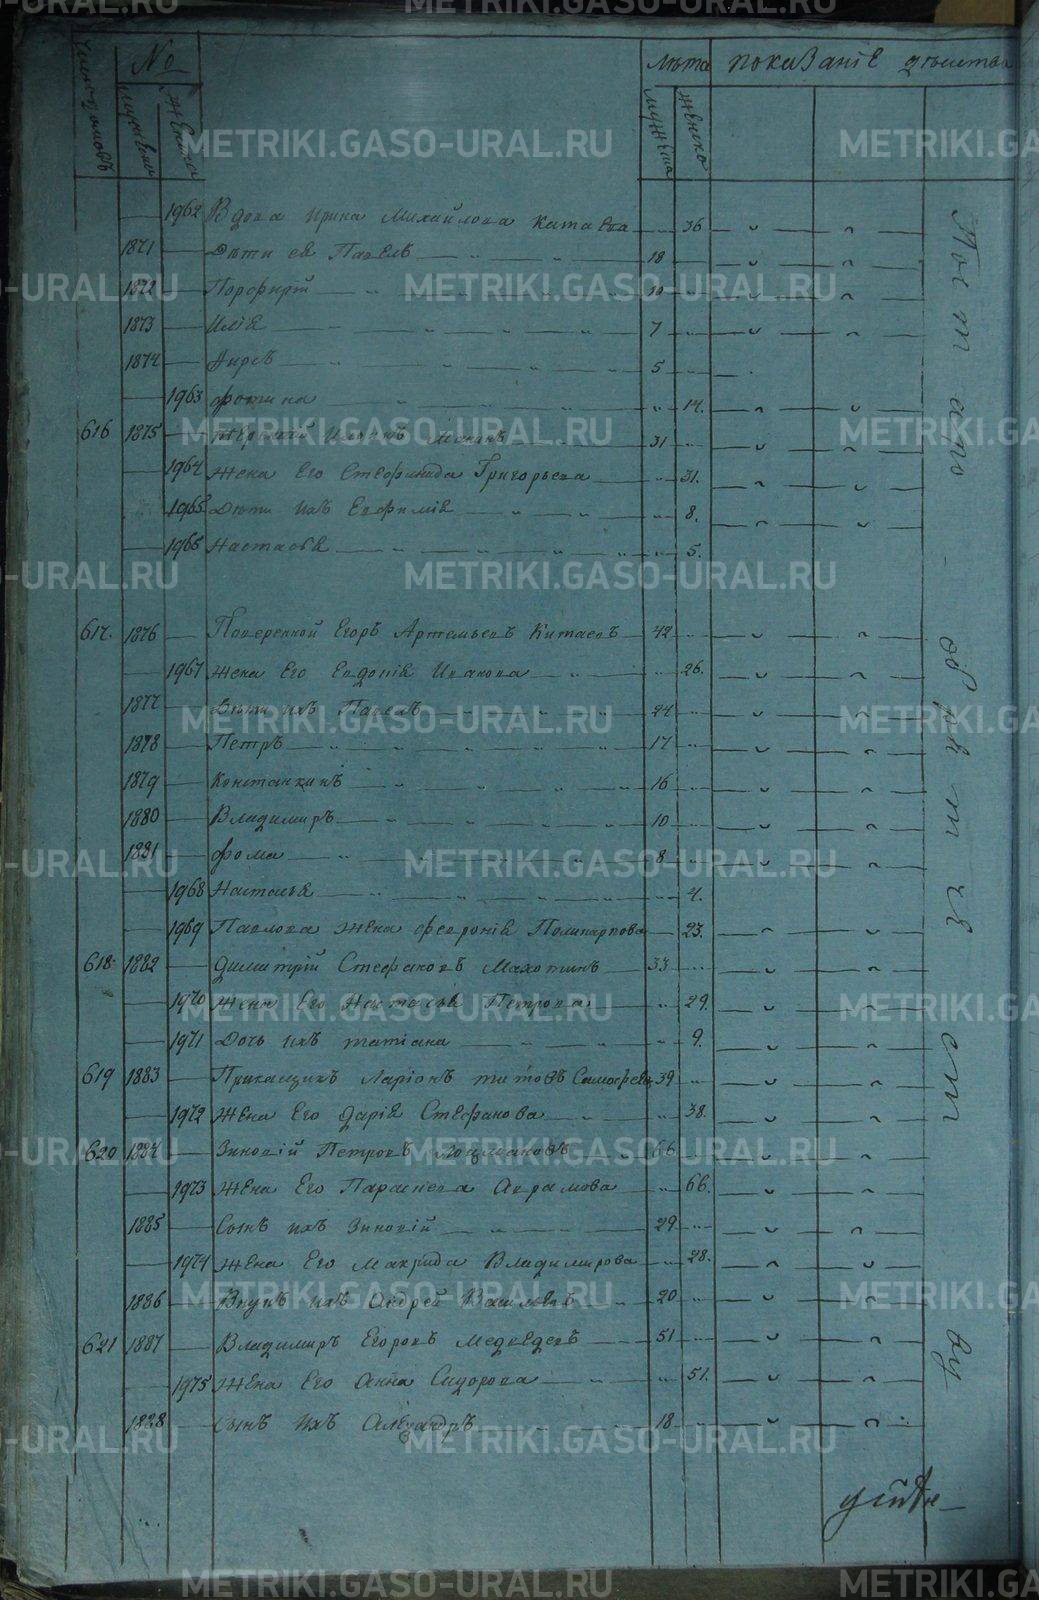 Число домовъ № мужеска женска лѣта мужеска женско показанiе дѣйства
1962 Вдова Ирина Михайлова Катаева 36
1871 Дѣти ея Павелъ 18
1872 Порфирiй 10
1873 Илiя 7
1874 Киръ 5
1963 фотина 14.
616 1875 31
1964 жена Его Стефанида Григорьева 31.
1965 Дѣти ихъ Евфимiя 8.
1966 Настасья 5.
617. 1876 Поверенной Егоръ Артемьевъ Китаевъ 42
1967 жена Его Евдокiя Иванова 26.
1877 Дѣти ихъ Павелъ 24
1878 Петръ 17
1879 Константинъ 16
1880 Владимиръ 10
1881 фома 8
1968 Настасья 4.
1969 Павлова жена феврониiя Поликарпова 23.
618. 1882 димитрiй Стефановъ Махотинъ 33
1970 жена Его Настасья Петрова 29.
1971 Дочь ихъ татiана 9.
619 1883 Прикащикъ Ларiонъ титовъ 39
1972 жена Его дарiя Стефанова 38.
620 1884 Зиновiй Петровъ 66
1973 жена Его Параскева Аврамова 66.
1885 Сынъ ихъ Зиновiй 29
1974 жена Его Макрида Владимирова 28.
1886 Внукъ ихъ Андрей Васильевъ 20
621 1887 Владимиръ Егоровъ Медведевъ 51
1975 жена Его Анна Сидорова 51.
1888 Сынъ ихъ Алеѯандръ 18
METRIKI.GASO-URAL.RU